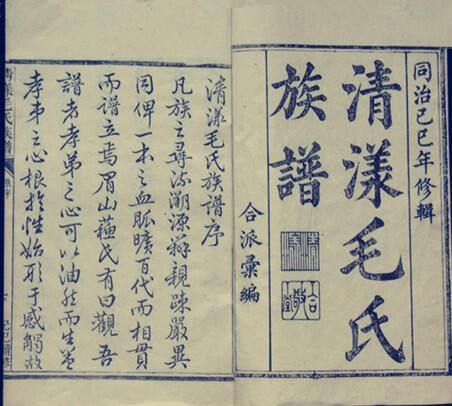 同治己巳年修輯
清漾毛氏
族譜
合派彙編
清漾毛氏族譜序
凡族之尋流溯源辯親踈嚴異
同俾一本之血脈曠百代而相貫
而譜立焉眉山蘇氏有曰觀吾
譜者孝弟之心可以油然而生蓋
孝弟之心根於性始形于感觸故
清漾毛氏族譜